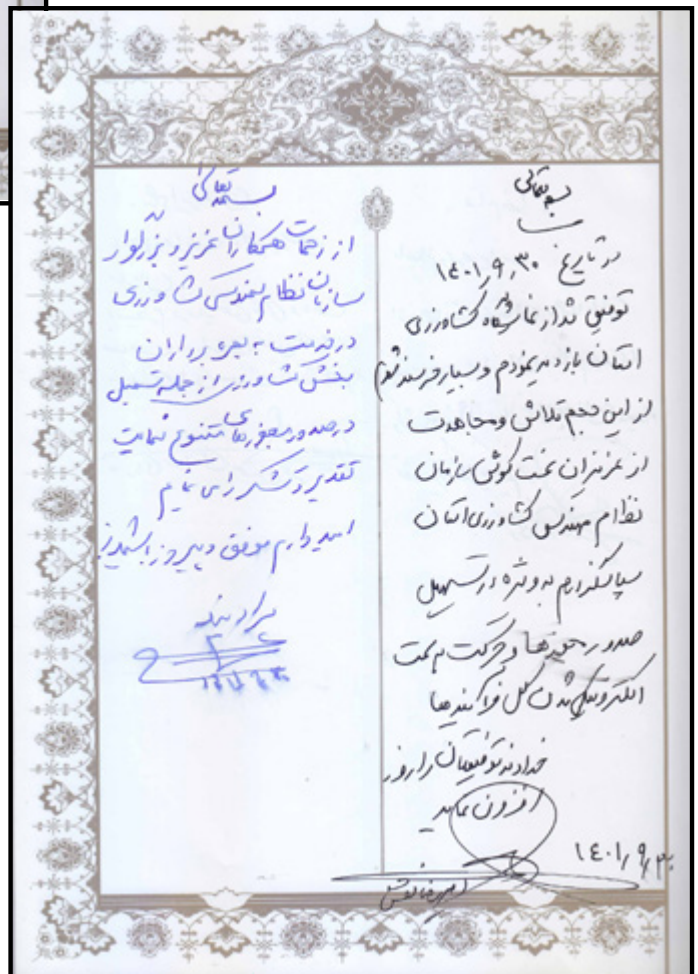 بسمه تعالی
در تاریخ ۱۴۰۱،۹،۳۰
توفیق شد از نمایشگاه کشاورزی
استان بازدید نمودم و بسیار خرسند شدم
از این حجم تلاش و مجاهدت
از عزیزان سخت کوش سازمان
نظام مهندسی کشاورزی استان
سپاسگزارم به ویژه در تسهیل
صدور مجوزها و حرکت به سمت
الکترونیکی شدن کل فرآیندها
خداوند توفیقاتتان را روز
افزون نماید
۱۴۰۱،۹،۳۰
بسمه تعالی
از زحمات همکاران عزیز و بزرگوار
سازمان نظام مهندسی کشاورزی
در خدمت به بهره برداران
بخش کشاورزی از جمله تسهیل
در صدور مجوزهای متنوع نهایت
تقدیر و تشکر را می نمایم
امیدوارم موفق و پیروز باشید